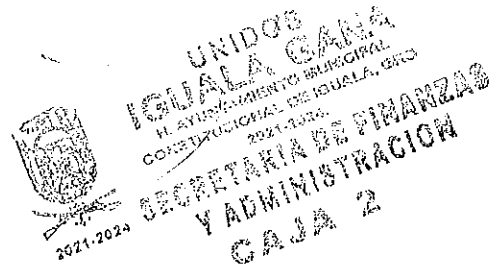 UNIDOS
IGUALA GANA
H. AYUNTAMIENTO MUNICIPAL
CONSTITUCIONAL DE IGUALA, GRO
2021-2024
SECRETARIA DE FINANZAS
Y ADMINISTRACION
CAJA 2
2021-2024